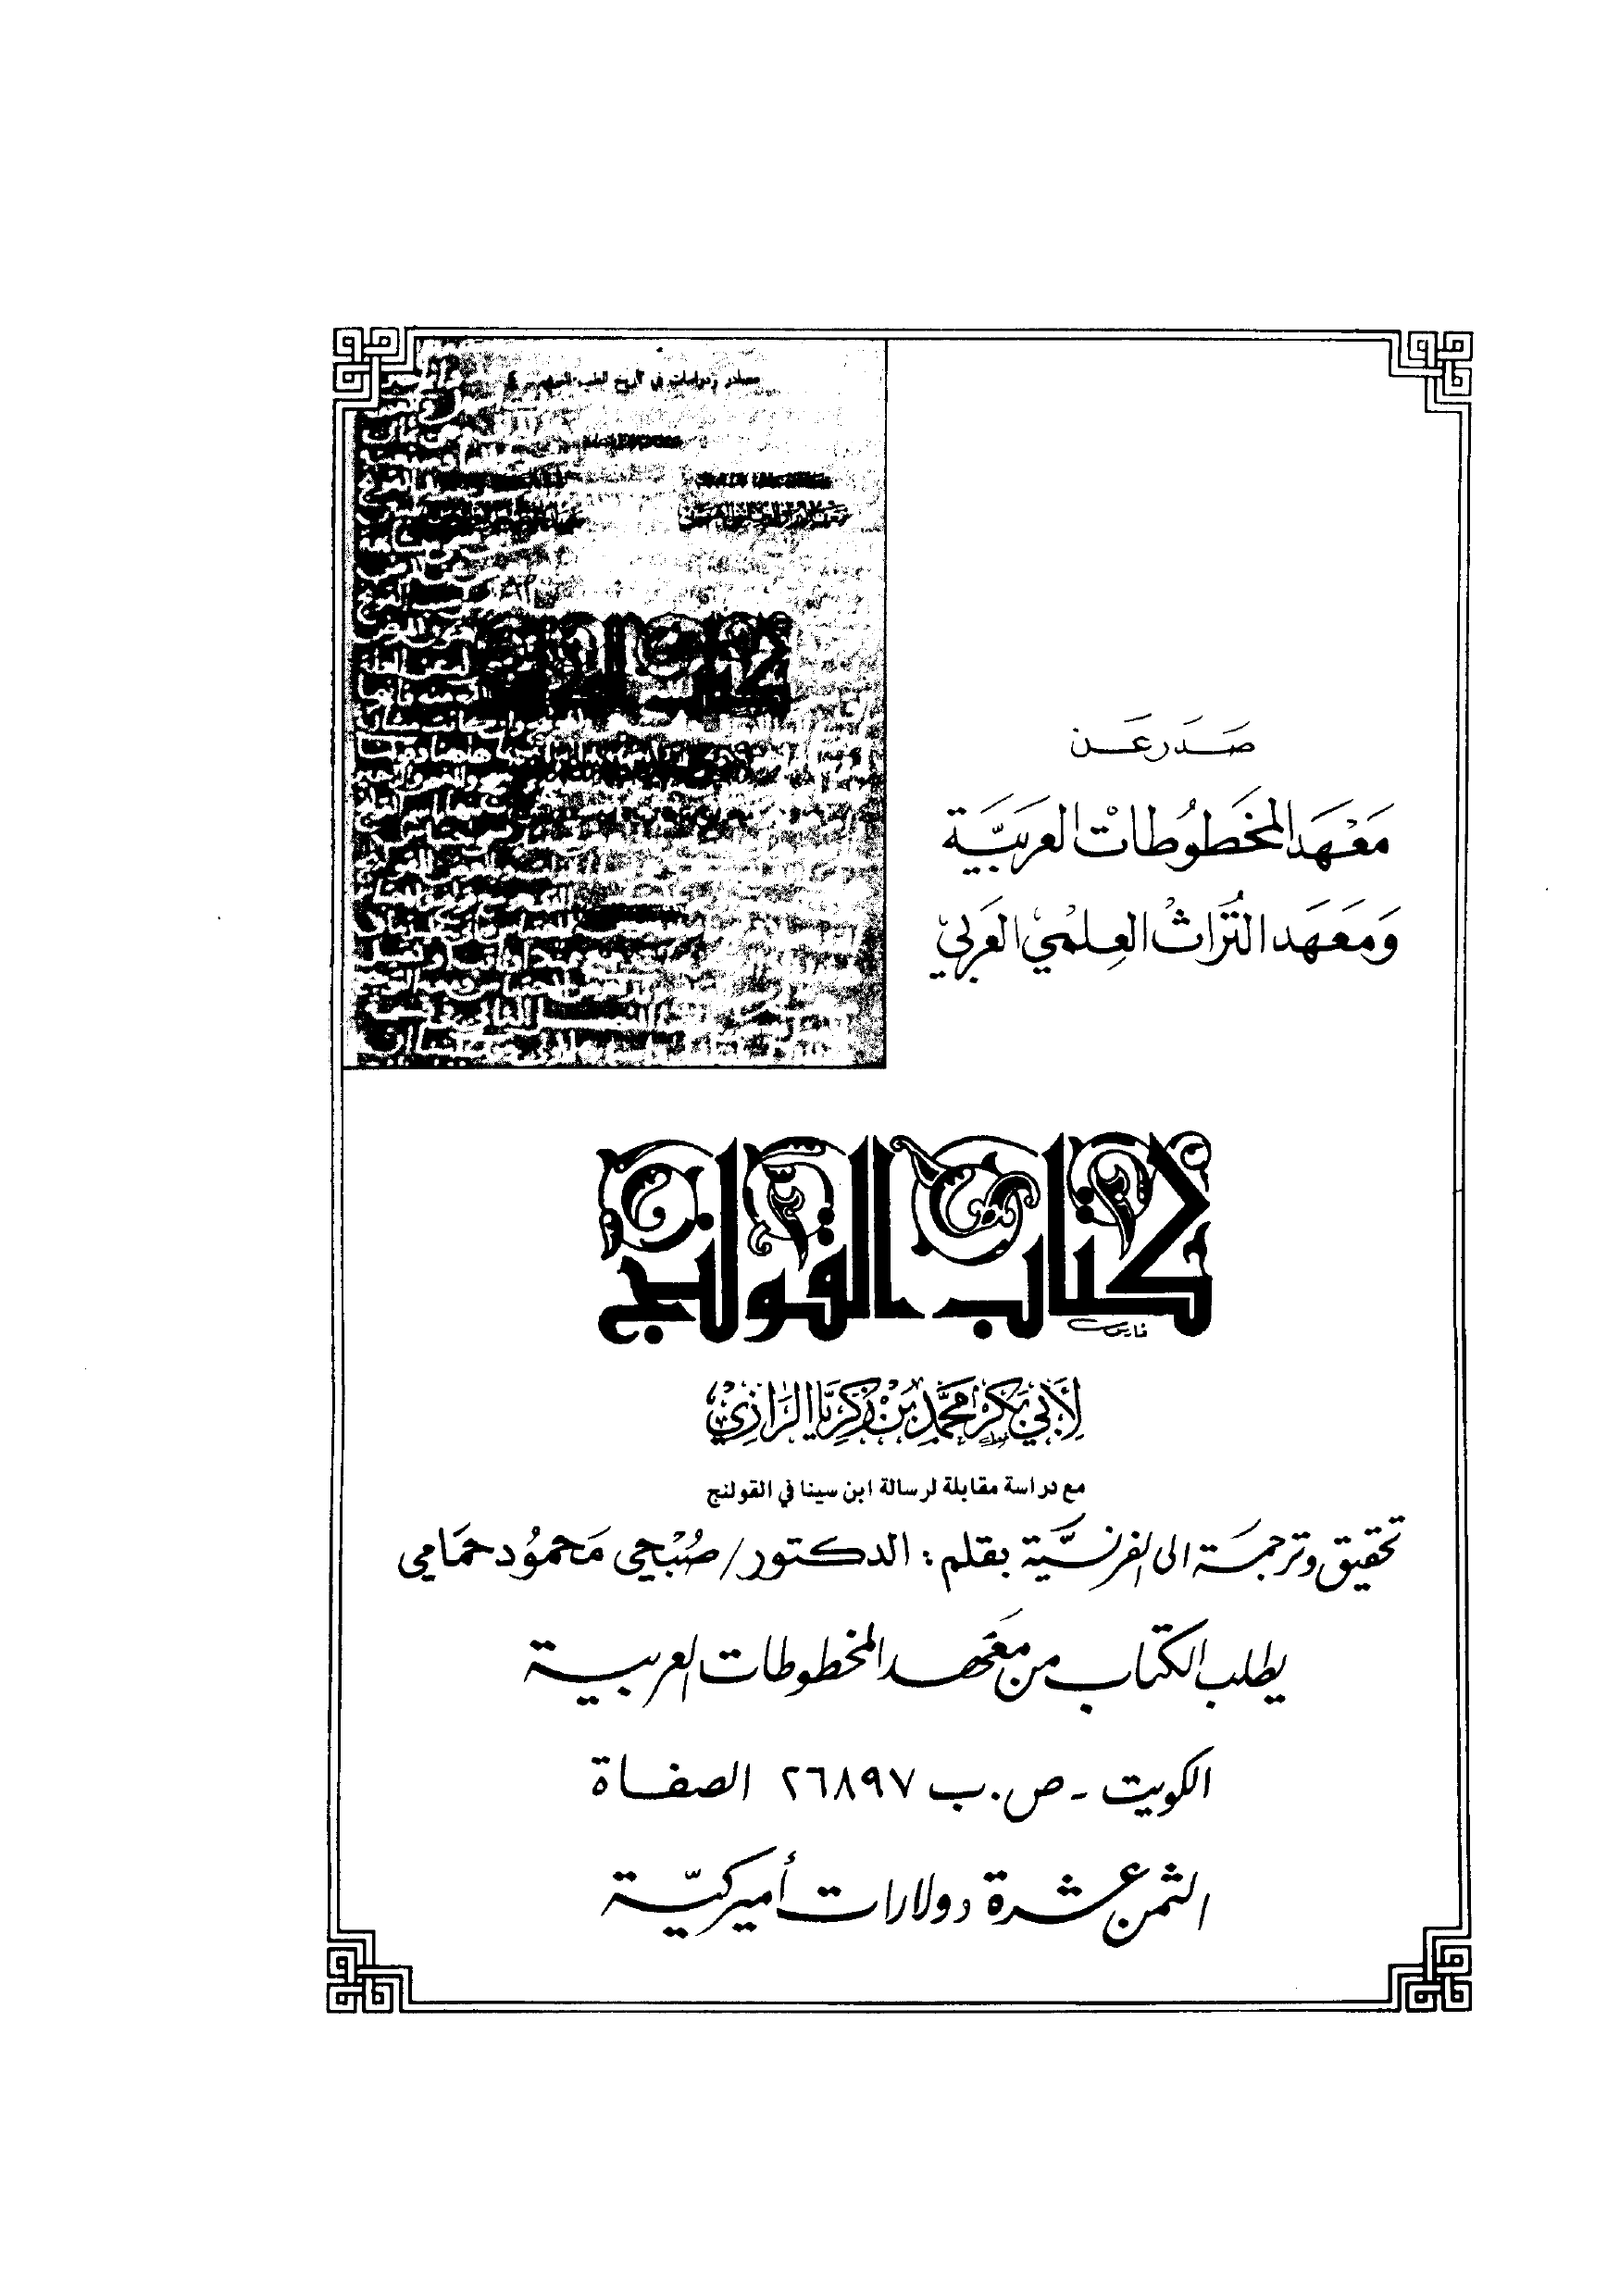 مصادر ودراسات في تاريخ الطب العربي
صَدَر عَن
مَعْهَد المَخطُوطَاتْ العَربيَّة
وَمَعهَد التُرَاثْ العِلمْي العَربي
كتاب القولنج
لأَبي بَكر محمَّد بنْ زكريَّا الرَازيْ
مع دراسة مقابلة لرسالة ابن سينا في القولنج
تحقيق وترجمَة الى الفرنسيَّة بقلم : الدكتور/ صُبْحي مَحمُود حمَامي
يطلب الكتاب من معَهد المخطوطات العربية
الكويت - ص.ب ٢٦٨٩٧ الصفاة
الثمن عشرة دولارات أميركيّة